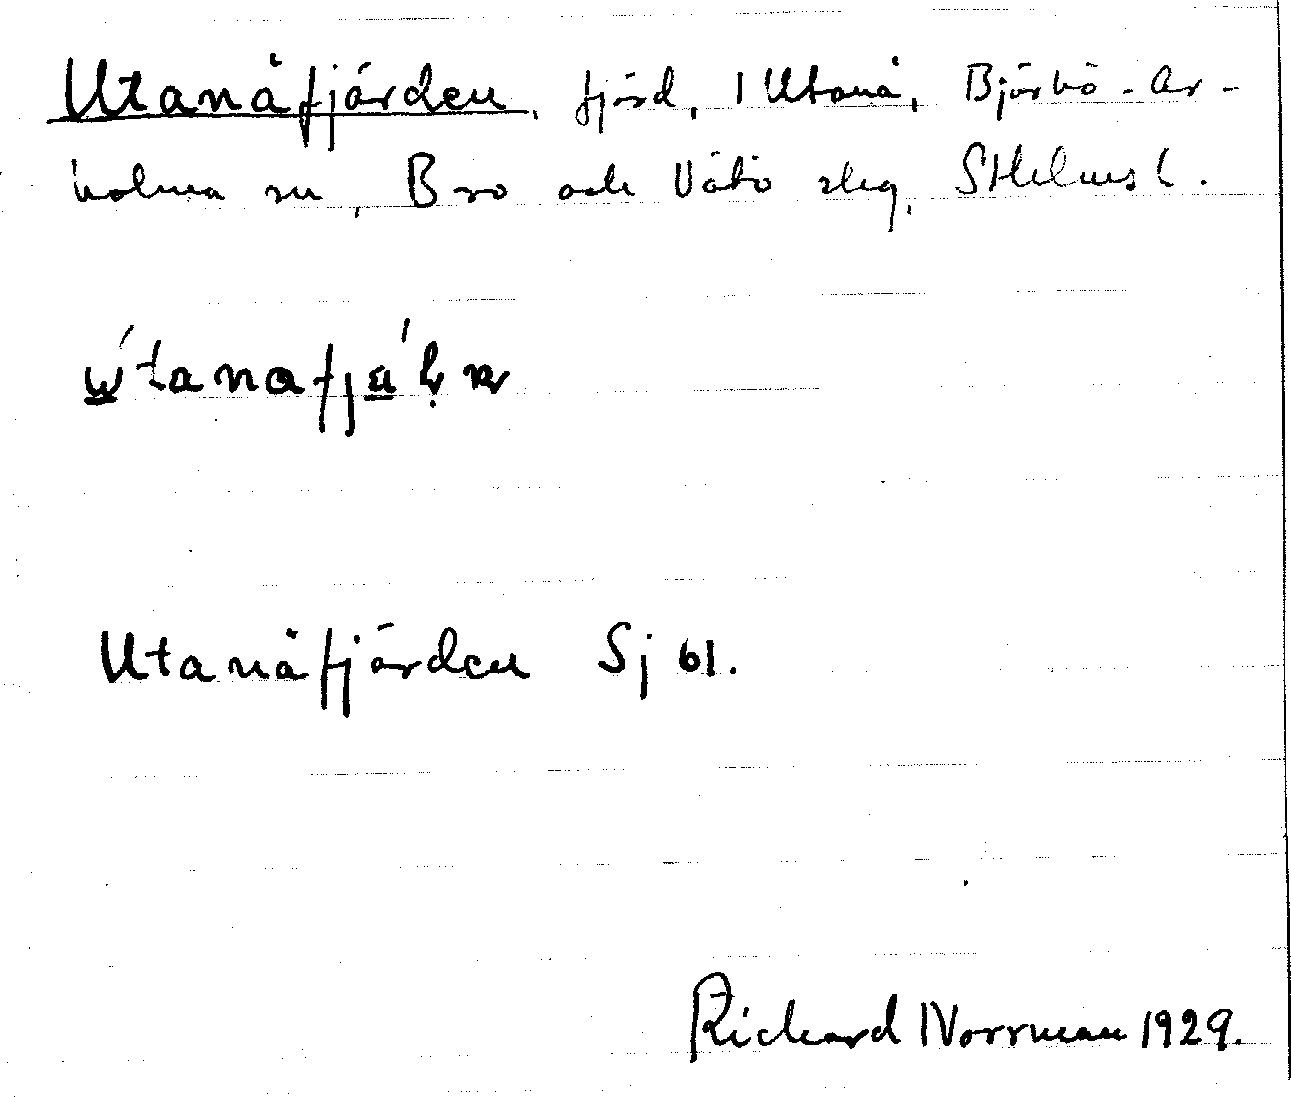 Utanåfjärden, fjärd, 1 Utanå, Björkö-Ar-
holma sn, Bro och Vätö slag, Sthlms l.
Utanåfjärden Sj 61.
Richard Norrman 1929.